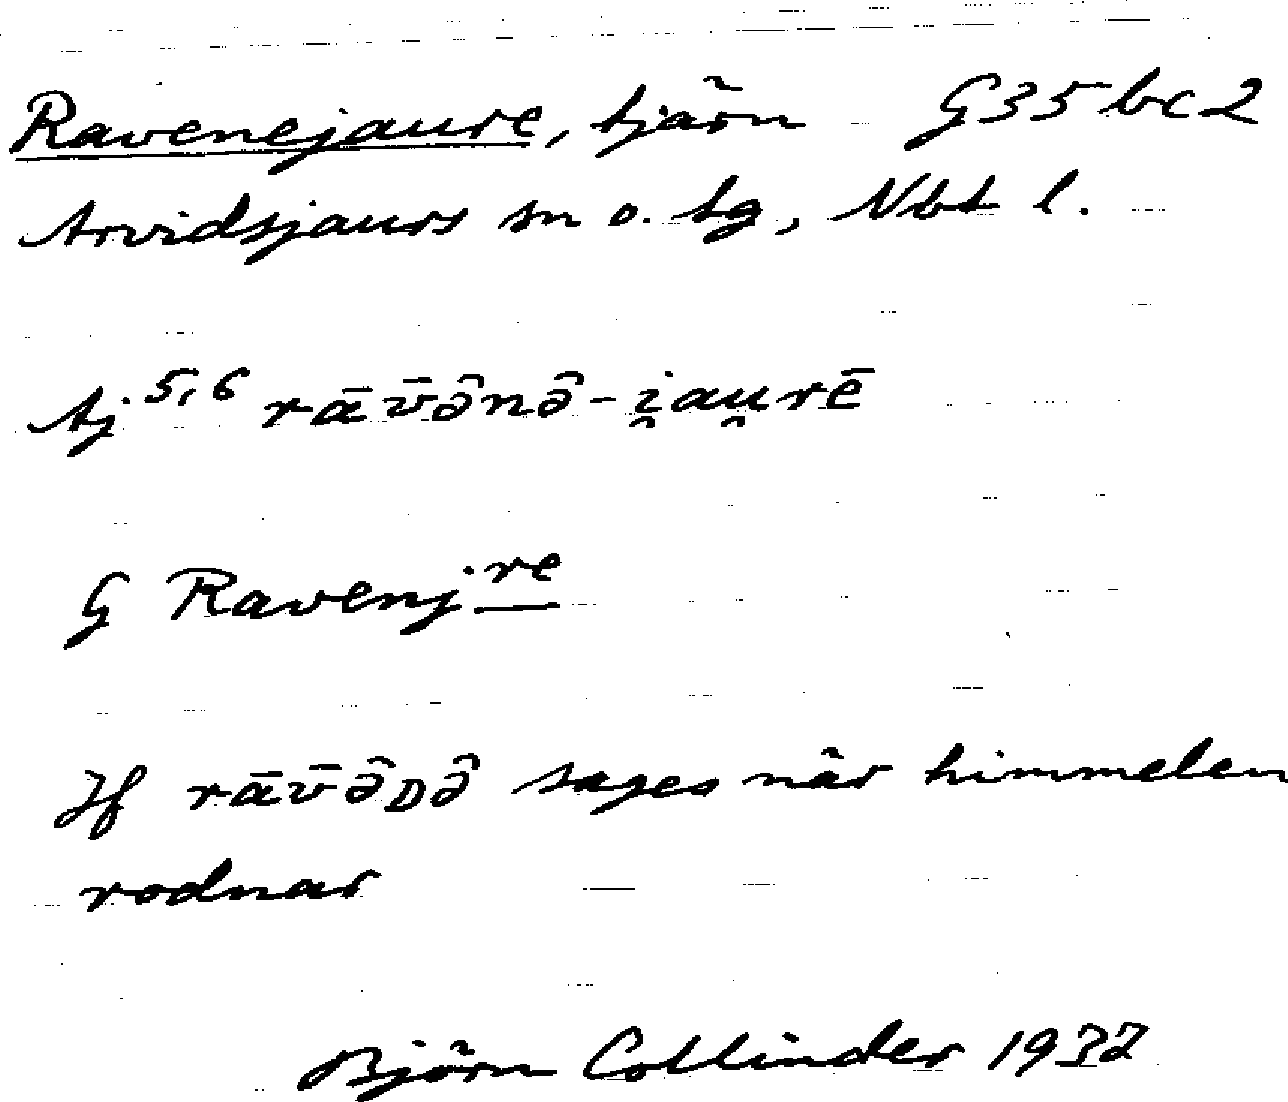 Ravenejaure, tjärn G35bc2
Arvidsjaurs sn o. tg, Nbt l.
Aj 5,6 rāv̄ə̑nə̑-i̯au̯rē
G Ravenj:re
Jf rāv̄ə̑ᴅə̑ sages när himmelen
rodnar
Björn Collinder 1937